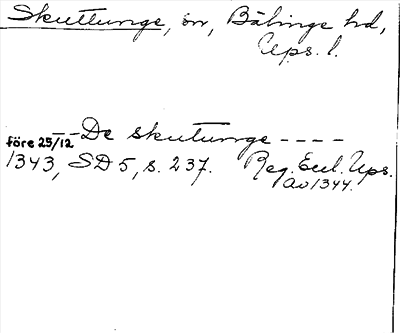 Skuttunge, sn, Bälinge hd,
Ups. l.
-- De skutunge ----
före 25/12
1343, SD 5, s. 237. Reg. Eccl. Ups.
av 1344.